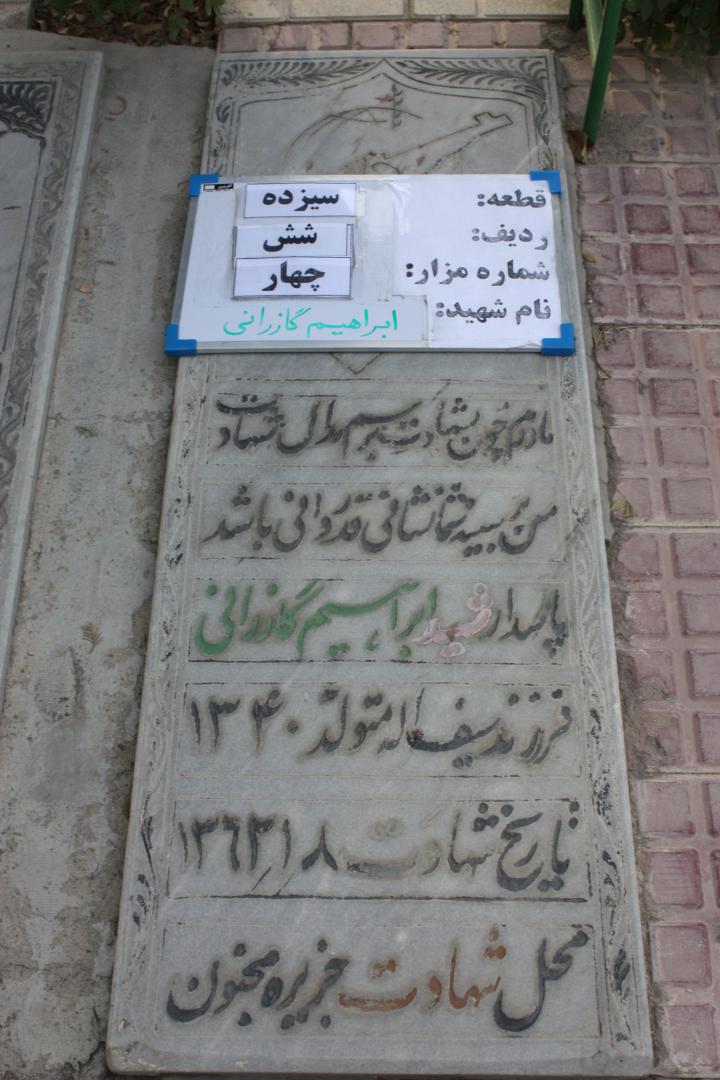 قطعه: سیزده
ردیف: شش
شماره مزار: چهار
نام شهید: ابراهیم گازرانی
مادرم چون بشهادت برسم مدال شهادت
من بر سینه شما نشانی قدردانی باشد
پاسدار شهید ابراهیم گازرانی
فرزند سیف اله متولد ۱۳۴۰
تاریخ شهادت ۸/۱/۱۳۶۳
محل شهادت جزیره مجنون